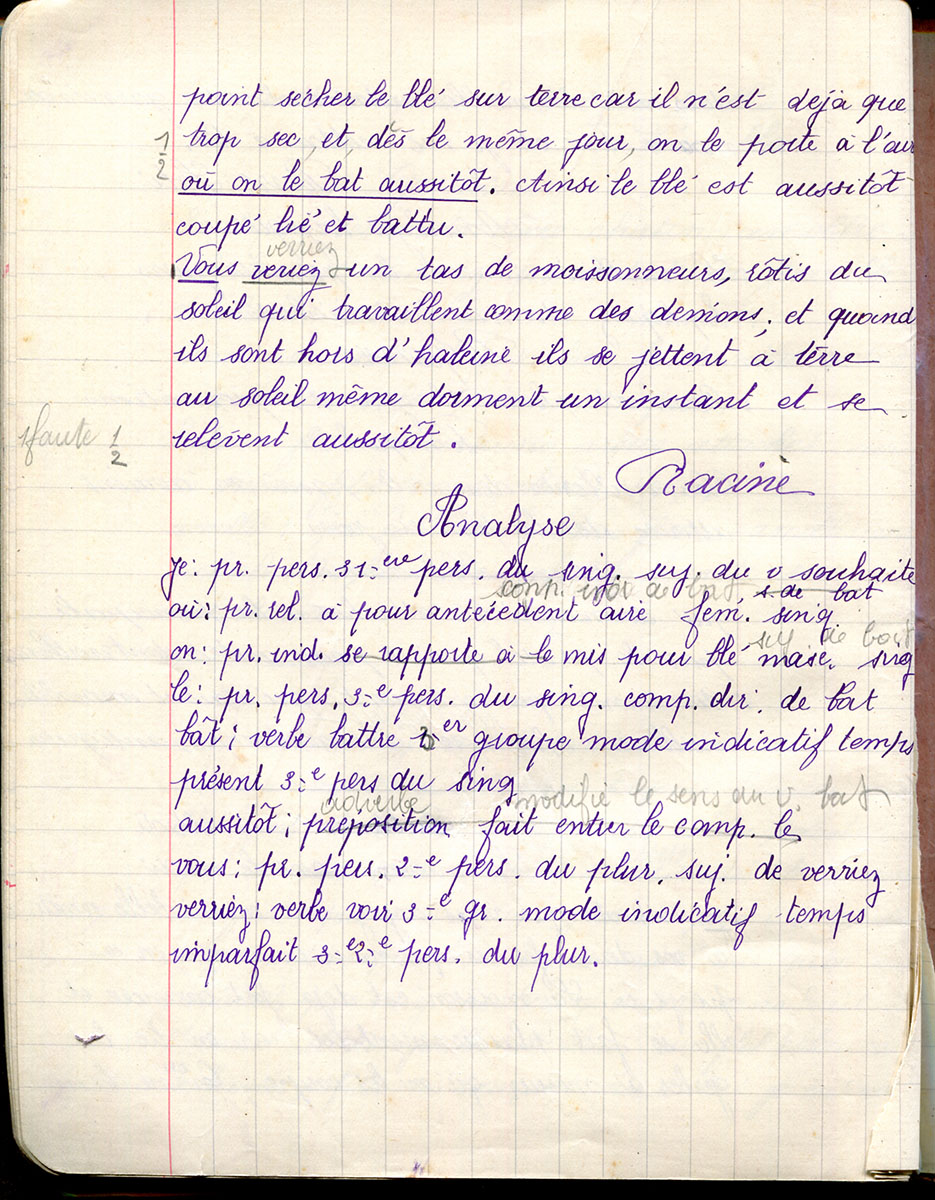 point sécher le blé sur terre car il n'est dejà que
1/2 trop sec, et, dès le même jour, on le porte à l'air
où on le bat aussitôt. Ainsi le blé est aussitôt
coupé lié et battu.
verriez
Vous veriez un tas de moissonneurs, rôtis du
soleil qui travaillent comme des demons, et quand
ils sont hors d'haleine ils se jettent à terre
au soleil même dorment un instant et se
faute 1/2 relèvent aussitôt.
Racine
Analyse
Je: pr. pers. 31=ère pers. du sing. suj. du v souhaite
comp. indi de bat s. de bat
où: pr. rel. à pour antécédent aire fem. sing.
suj. de bat
on: pr. ind. se rapporte à le mis pour blé masc. sing
le: pr. pers. 3=e pers. du sing. comp. dir. de bat
bât; verbe battre er groupe mode indicatif temps
présent 3=e pers du sing
adverbe modifie le sens du v. bat
aussitôt; préposition fait entrer le comp. le
vous: pr. pers. 2=e pers. du plur. suj. de verriez
verriez: verbe voir 3=e gr. mode indicatif temps
imparfait 3=e 2=e pers. du plur.